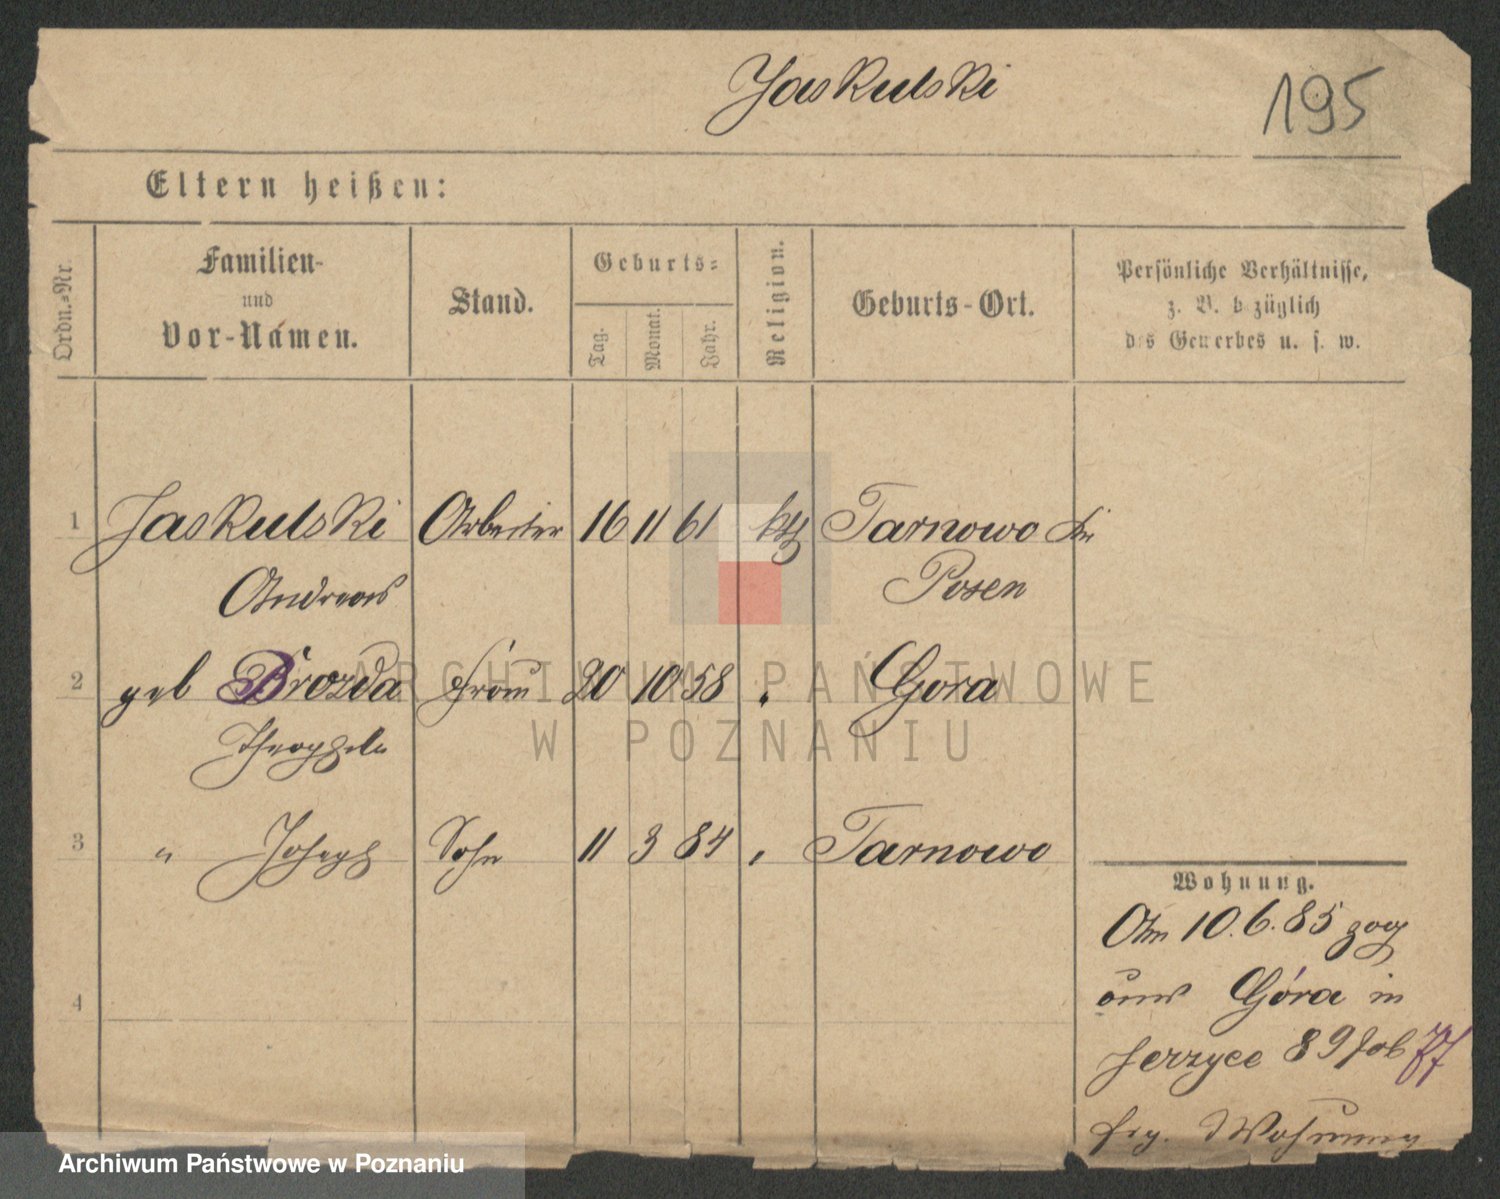 Jaskulski
195
Eltern heißen:
Ordn.-Nr.
Familien-
und
Vor-Namen.
Stand.
Geburts-
Tag.
Monat.
Jahr.
Religion.
Geburts-Ort.
Persönliche Verhältnisse,
z. B. bezüglich
des Gewerbes u. s. w.
1 Jaskulski Arbeiter 16 11 61 kth Tarnowo Kr
Andreas Posen
2 geb Brozda Frau 20 10 58 " Gora
Theophila
3 " Joseph Sohn 11 3 84 " Tarnowo
4
Wohnung.
Am 10.6.85 zog
aus Góra in
Jerzyce 89
77
Wohnung
ARCHIWUM PAŃSTWOWE
W POZNANIU
Archiwum Państwowe w Poznaniu